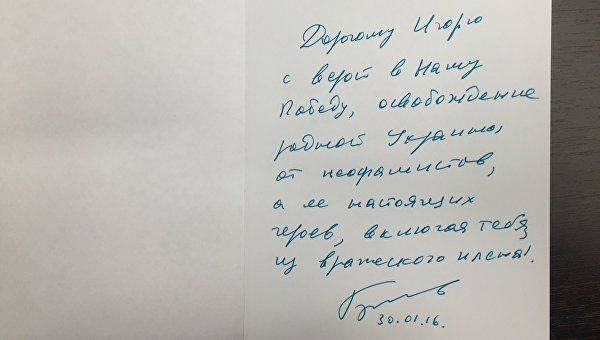 Дорогому Игорю
с верой в Нашу
Победу, освобождение
родной Украины,
от неофашистов,
а ее настоящих
героев, включая тебя,
из вражеского плена!
30.01.16.